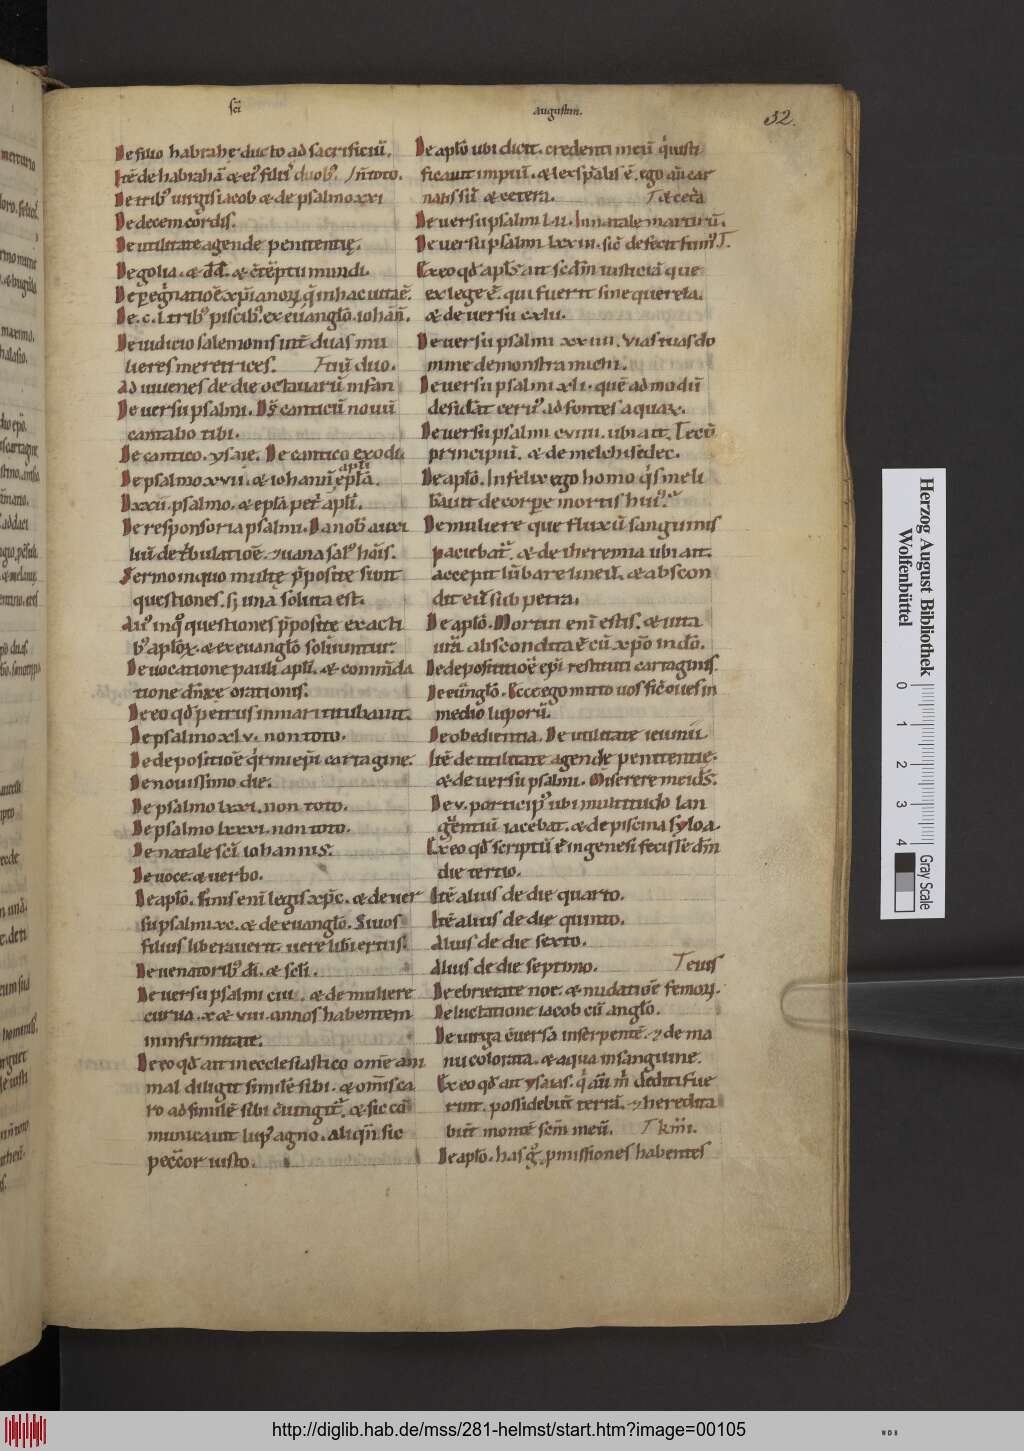 sc̄i
augustini.
32.
De filio habrahę ducto ad sacrificiū.
Itē de habrahā & ei᷒ filii᷒ duob᷒. In toto.
De trib᷒ uirgis iacob & de psalmo xxi
De decem cordis.
De utilitate agende penitentię.
De golia. & dd̄. & c̄tēptu mundi.
De p̲eg̍natiōe xp̄ianoꝝ q̄ in hac uita ē.
De .c.l trib᷒ piscib᷒. ex euanglō. iohan̄.
De iudicio salemonis int̄ duas mu
lieres meretrices. Fr̄iū duo.
Ad iuuenes de die octauarū infan
De uersu psalmi. Ds̄ canticū nouū
cantabo tibi.
De cantico. ysaie. De cantico exodi
De psalmo xvii. & iohannī ap̄li ep̄la.
Dxxii. psalmo. & epl̄a pet̍ apl̄i.
De responsoria psalmi. Da nob᷒ auxi
liū de t̍bulatiōe. ⁊ uana sal᷒ hōis.
Sermo in quo multę p̄posite sunt
questiones. sꝫ una soluta est.
Ali᷒ in q᷒ questiones p̄posite ex acti
b᷒ aplōꝝ & ex euanglō soluuntur.
De uocatione pauli apl̄i. & com̄nda
tione dn̄ice orationis.
De eo qd̄ petrus in mari titubauit.
De psalmo xlv. non toto.
De depositiōe q̍rini ep̄i cartagine.
De nouissimo die.
De psalmo lxxi. non toto.
De psalmo lxxxi. non toto.
De natale sc̄i iohannis.
De uoce. & uerbo.
De aplō. Finis enī legis xp̄c. & de uer
su psalmi xc. & de euanglō. Si uos
filius liberauerit uere liberi eritis.
De uenatorib᷒ dī. & sc̄li.
De uersu psalmi ciii. & de muliere
curua. x & viii. annos habentem
in infirmitate.
De eo qd̄ ait in ecclesiastico om̄e ani
mal diligit simile sibi. & om̄is ca
ro ad similē sibi c̄iungit᷑. & sic cō
municauit lup᷒ agno. aliqn̄ sic
pecc̄or iusto.
De aplō ubi dicit. credenti in eū q̍ iusti
ficauit impiū. & lex sp̄alis ē. ego aū car
nalis sū & cetera. T & cet̍a
De uersu psalmi L.ii. In natale martirū.
De uersu psalmi lxxiii. sic̄ defecit fum᷒ T.
Ex eo qd̄ apls̄ ait scdm̄ iusticiā que
ex lege ē. qui fuerit sine querela.
& de uersu cxlii.
De uersu psalmi xxiiii. Vias tuas do
mine demonstra michi.
De uersu psalmi xli. quē ad modū
desid̍at ceru᷒ ad fontes aquaꝝ.
De uersu psalmi cviiii. ubi ait. Tecū
principiū. & de melchisedec.
De aplō. Infelix ego homo q̍s me li
b̍auit de corpe mortis hui᷒.
De muliere que fluxū sanguinis
paciebat᷑. & de iheremia ubi ait.
accepit lūbare lineū. & abscon
dit eū sub petra.
De aplō. Mortui enī estis. & uita
ur̄a abscondita ē cū xp̄o in dō.
De depositiōe ep̄i restituti cartaginis.
De eūnglō. Ecce ego mitto uos sic̄ oues in
medio luporū.
De obedientia. De utilitate ieiunii.
Itē de utilitate agende penitentie.
& de uersu psalmi. Miserere mei ds̄.
De .v. porticip᷒ ubi multitudo lan
guentiū iacebat. & de piscina syloa.
Ex eo qd̄ scriptū ē in genesi fecisse dm̄
die tertio.
Itē alius de die quarto.
Itē alius de die quinto.
Alius de die sexto.
Alius de die septimo. T euis
De ebrietate noe. & nudatiōe femoꝝ.
De luctatione iacob cū anglō.
De uirga c̄uersa in serpentē. ⁊ de ma
nu colorata. & aqua in sanguine.
Ex eo qd̄ ait ysaias. q̍ aūt m̍ dediti fue
rint. possidebūt terrā. ⁊ heredita
būt monte scm̄ meū. T kmi.
De aplō. has g̍ p̲missiones habentes
Herzog August Bibliothek
Wolfenbüttel
0 1 2 3 4
Gray Scale
http://diglib.hab.de/mss/281-helmst/start.htm?image=00105